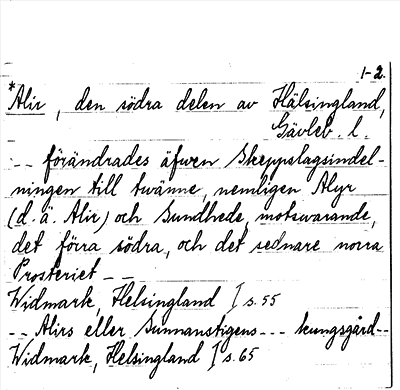 1-2.
*Alir, den södra delen av Hälsingland,
Gävleb. l.
-- förändrades äfwen Skeppslagsindel-
ningen till twänne, nemligen Alyr
(d.ä. Alir) och Sundhede, motswarande,
det förra södra, och det sednare norra
Prosteriet --
Widmark, Helsingland I s. 55
-- Alirs eller Sunnanstigens --- kungsgård--
Widmark, Helsingland I s. 65